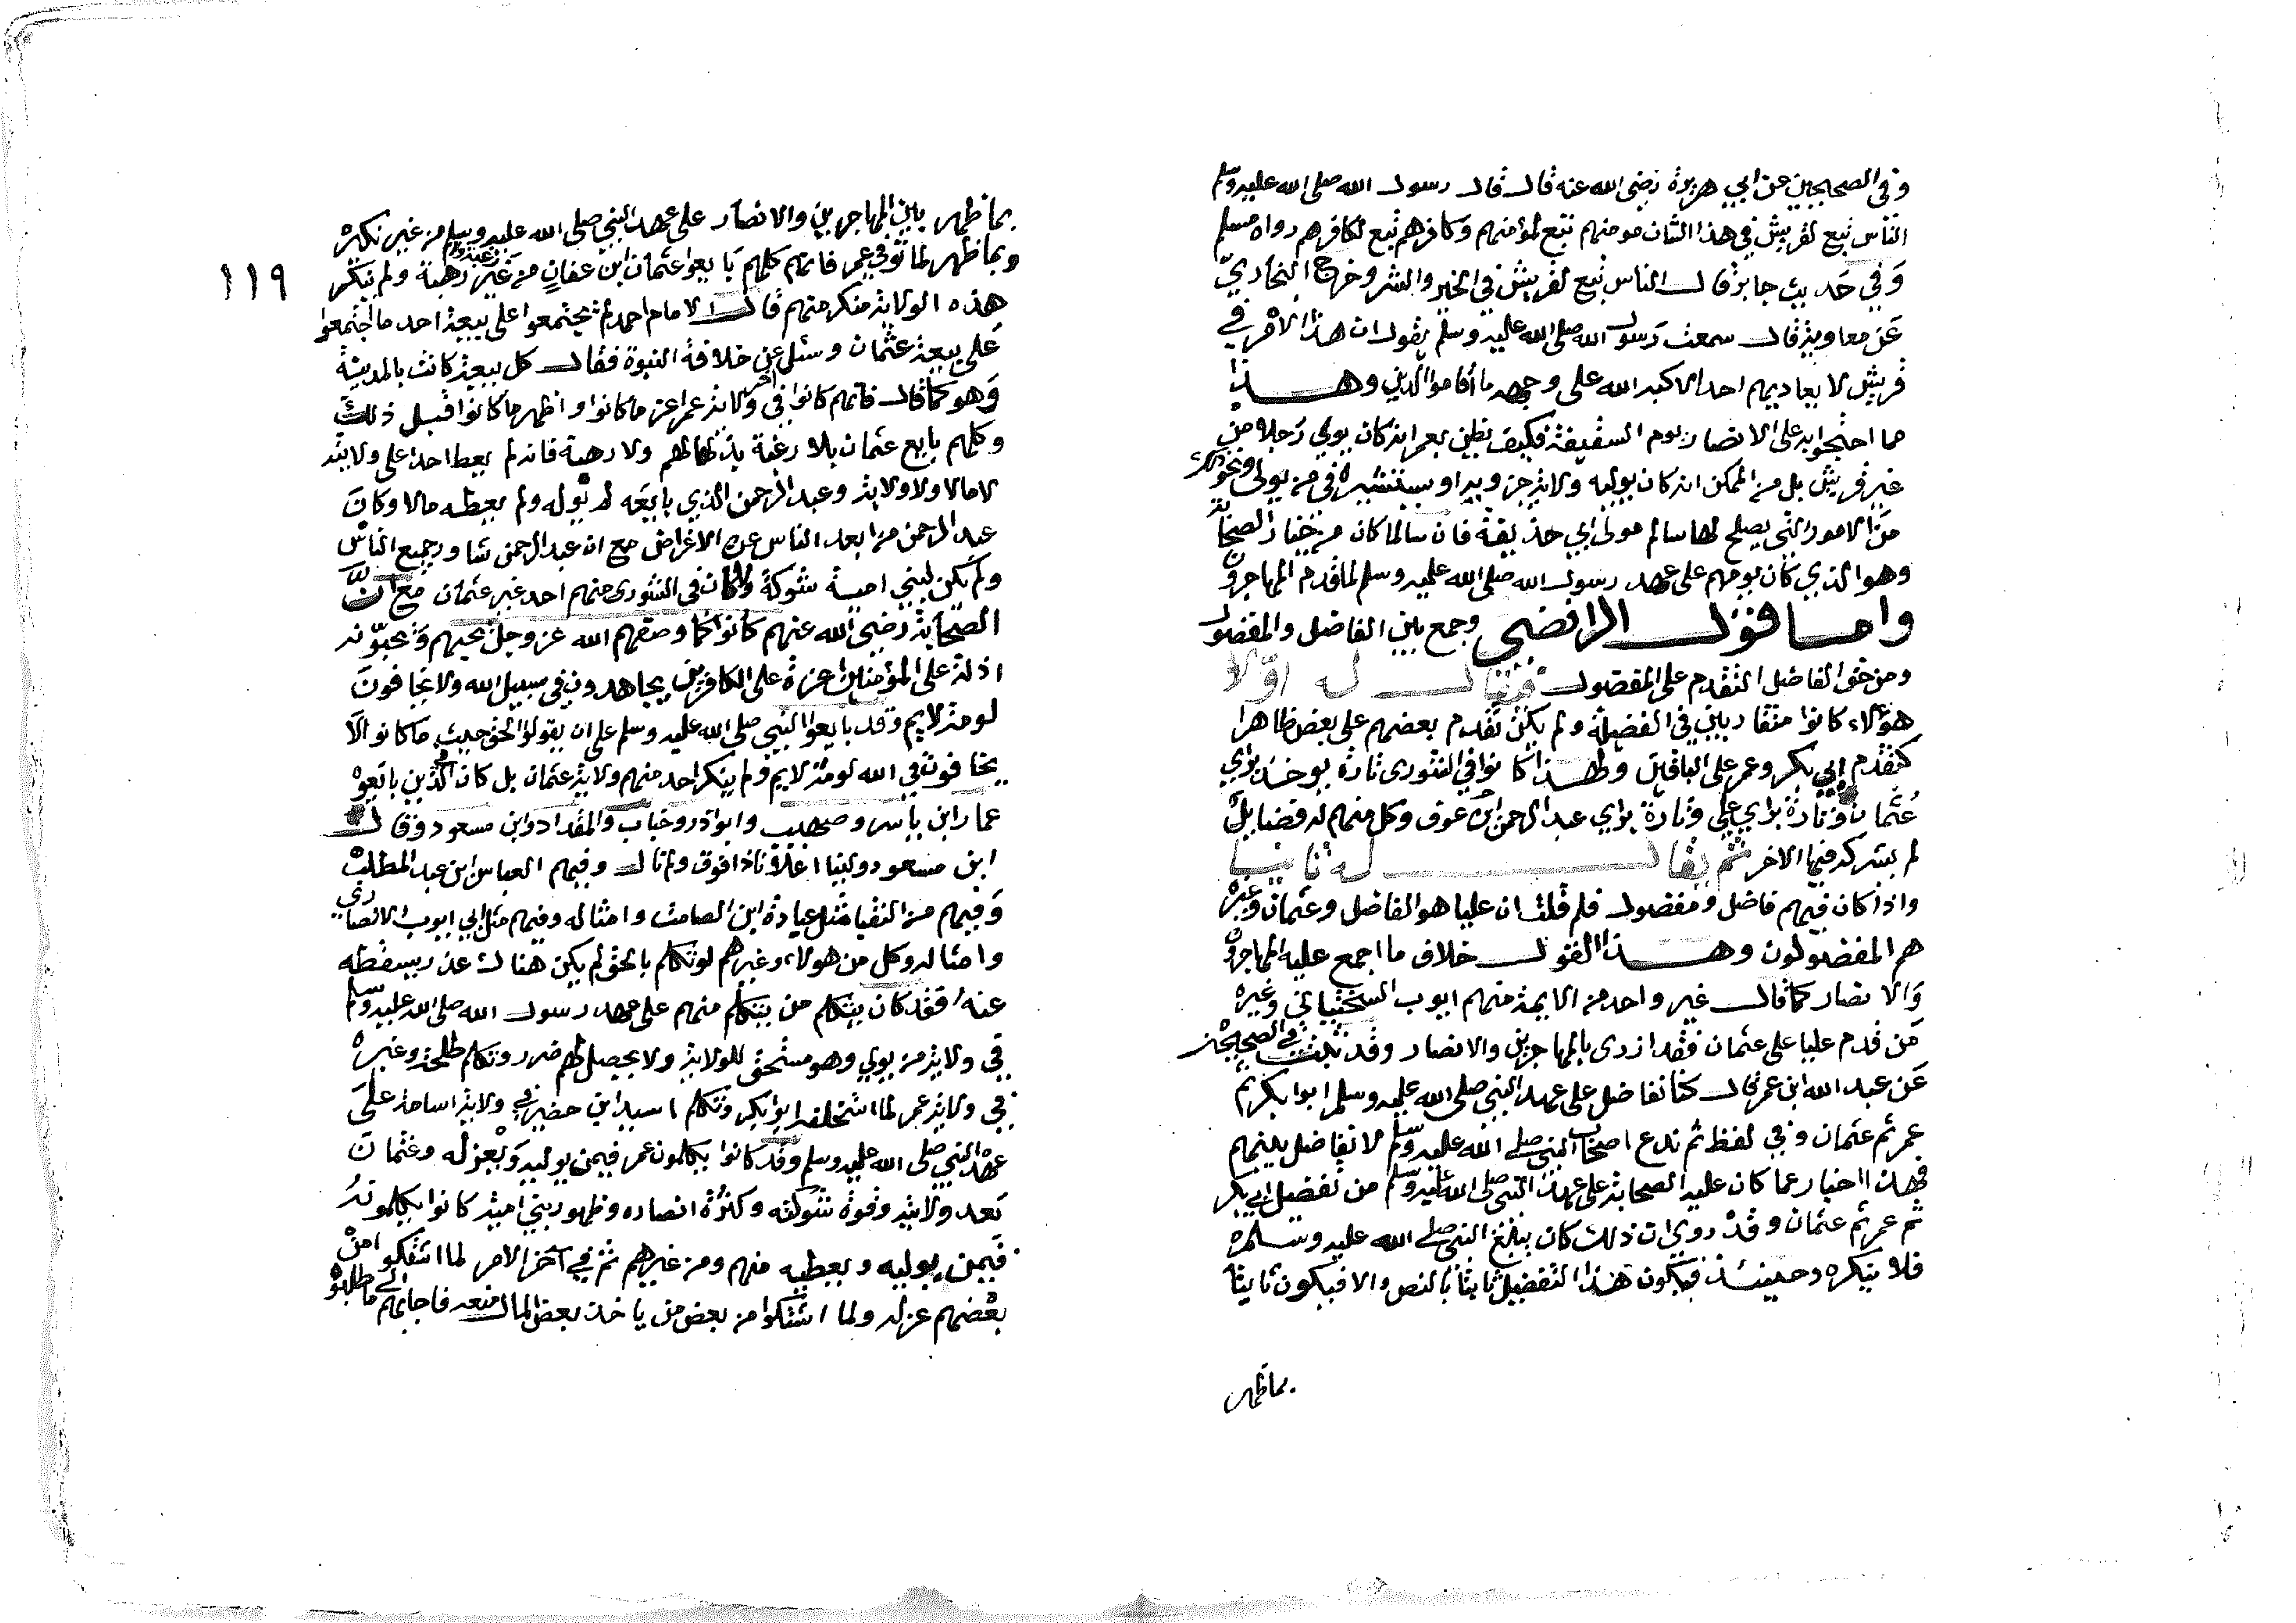 وفي الصحيحين عن ابي هريرة رضي الله عنه قال قال رسول الله صلى الله عليه وسلم
الناس تبع لقريش في هذا الشان مومنهم تبع لمؤمنهم وكافرهم تبع لكافرهم رواه مسلم
وفي حديث جابر قال الناس تبع لقريش في الخير والشر وخرج البخاري
عن معاوية قال سمعت رسول الله صلى الله عليه وسلم يقول ان هذا الامر في
قريش لا يعاديهم احد الا كبه الله على وجهه ما أقاموا الدين وهذا
مما احتجوا به على الانصار يوم السقيفة فكيف يظن بعمر انه كان يولي رجلا من
غير قريش بل من الممكن انه كان يوليه ولاية جزوية او يستشيره في من يولى ونحو ذلك
من الامور التي يصلح لها سالم مولى ابي حذيفة فان سالما كان من خيار الصحابة
وهو الذي كان يومهم على عهد رسول الله صلى الله عليه وسلم لما قدم المهاجرون
واما قول الرافضي وجمع بين الفاضل والمفضول
ومن حق الفاضل التقدم على المفضول فيقال له اوّلا
هؤلاء كانوا متقاربين في الفضيلة ولم يكن تقدم بعضهم على بعض ظاهرا
كتقدم ابي بكر وعمر على الباقين ولهذا كانوا في الشورى تارة يوخذ براي
عُثمان وتارة براي علي وتارة براي عبد الرحمن ابن عوف وكل منهم له فضايل
لم يشركه فيها الاخر ثم يقال له ثانيا
واذا كان فيهم فاضل ومفضول فلم قلت ان عليا هو الفاضل وعثمان وغيره
هم المفضولون وهذا القول خلاف ما اجمع عليه المهاجرون
والانصار كما قال غير واحد من الايمة منهم ايوب السختياني وغيره
من قدم عليا على عثمان فقد ازرى بالمهاجرين والانصار وقد ثبت في الصحيحين
عن عبد الله ابن عمر قال كنا نفاضل على عهد النبي صلى الله عليه وسلم ابوا بكر ثم
عمر ثم عثمان وفي لفظ ثم ندع اصحاب النبي صلى الله عليه وسلم لا نفاضل بينهم
فهذا اخبار عما كان عليه الصحابة على عهد النبي صلى الله عليه وسلم من تفضيل ابي بكر
ثم عمر ثم عثمان وقد روي ان ذلك كان يبلغ النبي صلى الله عليه وسلم
فلا ينكره وحينئذ فيكون هذا التفضيل ثابتا بالنص والا فيكون ثابتا
بما ظهر
١١٩
بما ظهر بين المهاجرين والانصار على عهد النبي صلى الله عليه وسلم من غير نكيره
وبما ظهر لما توفي عمر فانهم كلهم بايعوا عثمان ابن عفان من غير رغبة ولا رهبة ولم ينكر
هذه الولاية منكر منهم قال الامام احمد لم يجتمعوا على بيعة احد ما اجتمعوا
على بيعة عثمان وسئل عن خلافة النبوة فقال كل بيعة كانت بالمدينة
وهو كما قال فانهم كانوا في اخر ولاية عمر اعز ما كانوا واظهر ما كانوا قبل ذلك
وكلهم بايع عثمان بلا رغبة بذلها لهم ولا رهبة فانه لم يعط احدا على ولايته
لا مالا ولا ولاية وعبد الرحمن الذي بايعه لم يوله ولم يعطه مالا وكان
عبد الرحمن من ابعد الناس عن الاغراض مع ان عبد الرحمن شاور جميع الناس
ولم يكن لبني امية شوكة ولا كان في الشورى منهم احد غير عثمان مع انّ
الصحابة رضي الله عنهم كانوا كما وصفهم الله عز وجل يحبهم ويحبّونه
اذلة على المؤمنين اعزة على الكافرين يجاهدون في سبيل الله ولا يخافون
لومة لايم وقد بايعوا النبي صلى الله عليه وسلم على ان يقولوا الحق حيث ما كانوا لا
يخافون في الله لومة لايم ولم ينكر احد منهم ولاية عثمان بل كان في الذين بايعوه
عمار ابن ياسر وصهيب وابو اذر وخباب والمقداد وابن مسعود وقال
ابن مسعود ولينا اعلانا ذا فوق ولم نال وفيهم العباس ابن عبد المطلب
وفيهم من النقبا مثل عبادة ابن الصامت وامثاله وفيهم مثل ابي ايوب الانصاري
وامثاله وكل من هولاء وغيرهم لو تكلم بالحق لم يكن هناك عذر يسقطه
عنه فقد كان يتكلم من يتكلم منهم على عهد رسول الله صلى الله عليه وسلم
في ولاية من يولي وهو مستحق للولاية ولا يحصل لهم ضرر وتكلم طلحة وغيره
في ولاية عمر لما استخلفه ابو بكر وتكلم اسيد ابن حضير في ولاية اسامة على
عهد النبي صلى الله عليه وسلم وقد كانوا يكلمون عمر فيمن يوليه ويعزله وعثمان
بعد ولايته وقوة شوكته وكثرة انصاره وظهور بني امية كانوا يكلمونه
فيمن يوليه ويعطيه منهم ومن غيرهم ثم في آخر الامر لما اشتكوا من
بعضهم عزله ولما اشتكوا من بعض من ياخذ بعض المال منعه فاجابهم الى ما طلبوه